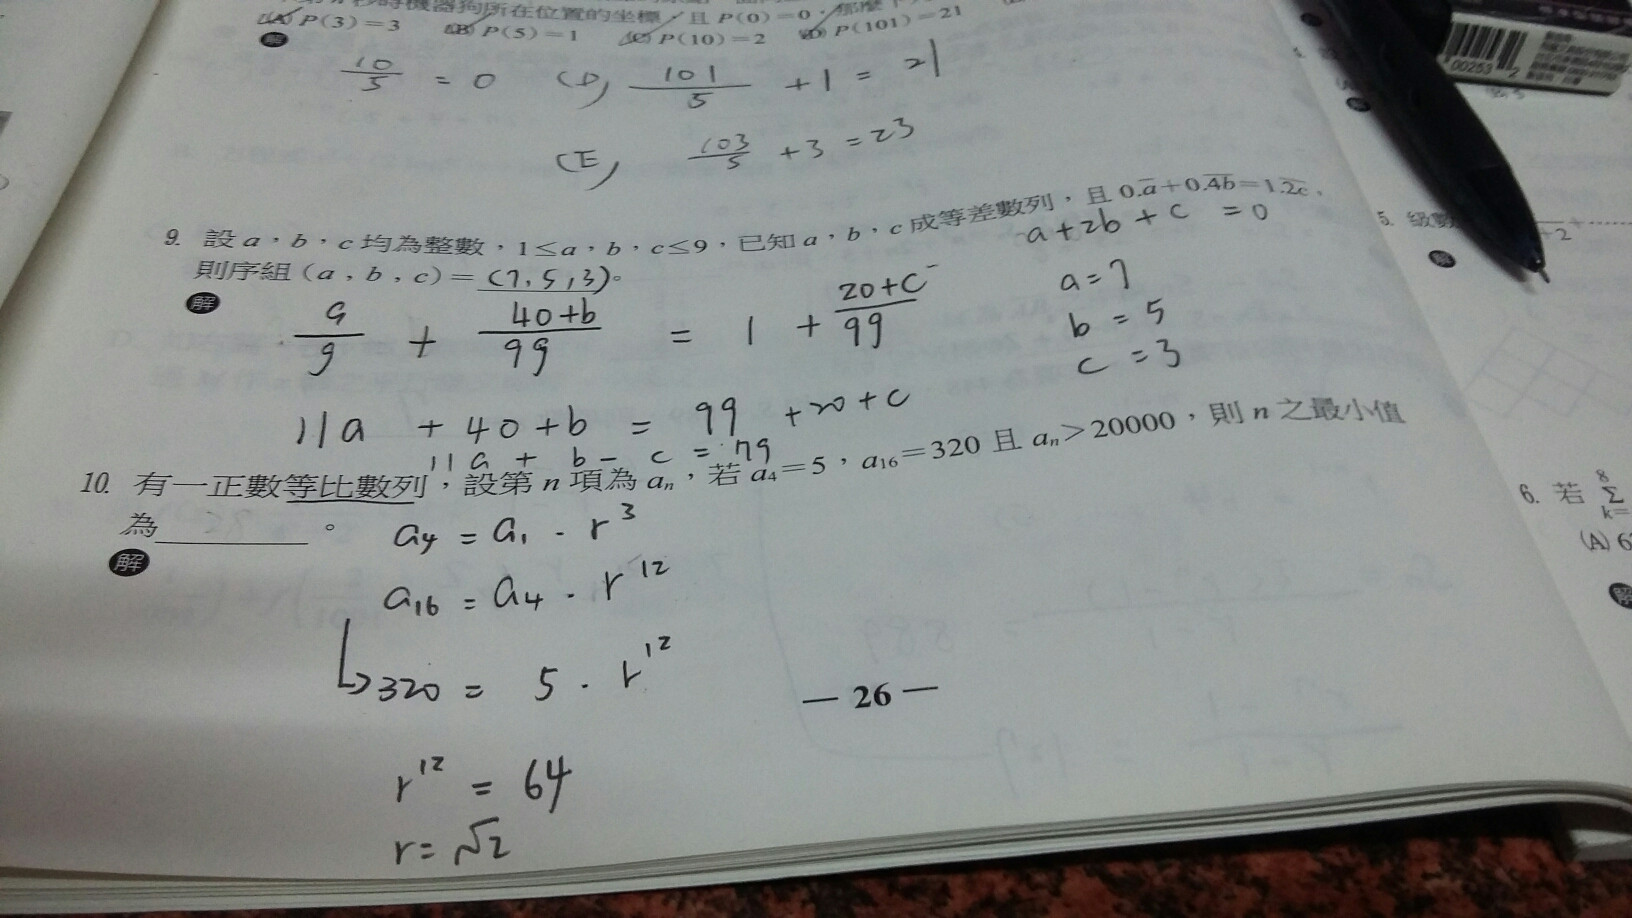 時機器狗所在位置的坐標,且 P(0)=0,那麼
(A) P(3)=3 (B) P(5)=1 (C) P(10)=2 (D) P(101)=21
解
10/5 = 0 (D) 101/5 + 1 = 21
(E) 103/5 + 3 = 23
9. 設 a,b,c 均為整數,1≤a,b,c≤9,已知 a,b,c 成等差數列,且 0.a̅+0.4̅b̅=1.2̅c̅,
a+2b+c = 0
則序組 (a,b,c)=(7,5,3)。
解
a/9 + 40+b/99 = 1 + 20+c/99
a=7
b=5
c=3
11a + 40+b = 99 +20+c
11a + b - c = 79
10. 有一正數等比數列,設第 n 項為 aₙ,若 a₄=5,a₁₆=320 且 aₙ>20000,則 n 之最小值
為 28 。
解
a₄ = a₁ · r³
a₁₆ = a₄ · r¹²
↳ 320 = 5 · r¹²
r¹² = 64
r = √2
— 26 —
00253 2
5. 級數
+2
解
6. 若 8 Σ k=
(A) 6
解